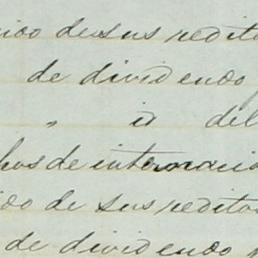 de sus redit
de dividendo
" id del
de internacio
ido de sus reditos
de dividendo